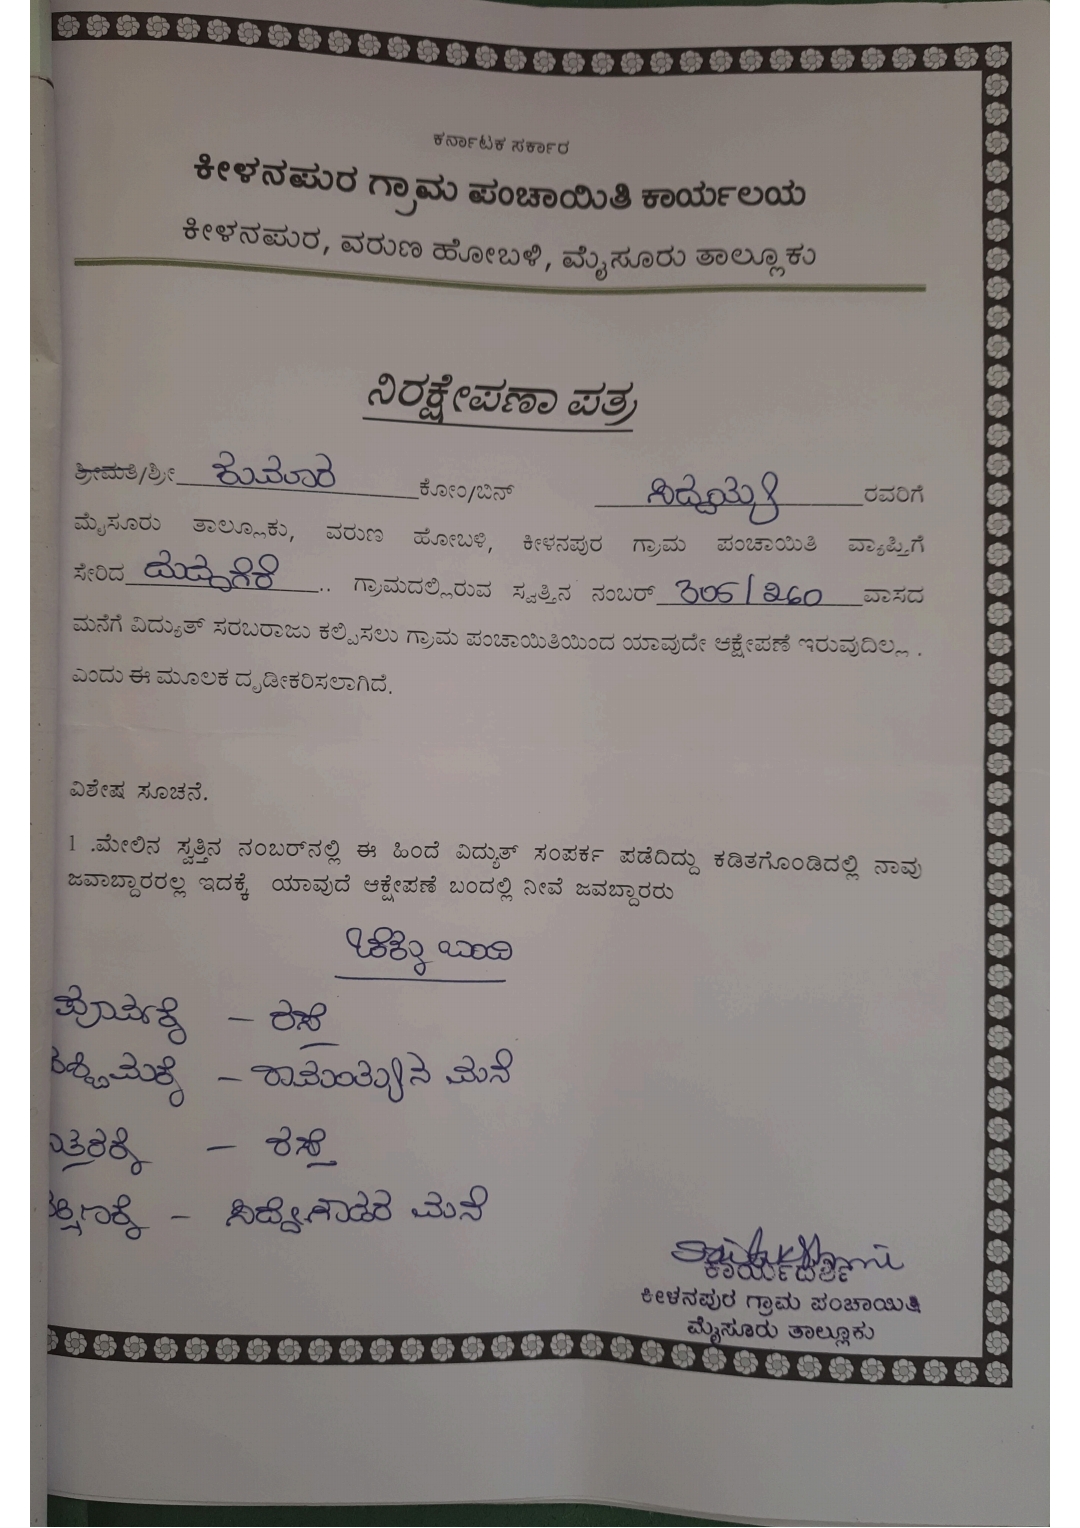 ಕರ್ನಾಟಕ ಸರ್ಕಾರ
ಕೀಳನಪುರ ಗ್ರಾಮ ಪಂಚಾಯಿತಿ ಕಾರ್ಯಲಯ
ಕೀಳನಪುರ, ವರುಣ ಹೋಬಳಿ, ಮೈಸೂರು ತಾಲ್ಲೂಕು
ನಿರಕ್ಷೇಪಣಾ ಪತ್ರ
ಶ್ರೀಮತಿ/ಶ್ರೀ ಕುಮಾರ ಕೋಂ/ಬಿನ್ ಸಿದ್ದಯ್ಯ ರವರಿಗೆ
ಮೈಸೂರು ತಾಲ್ಲೂಕು, ವರುಣ ಹೋಬಳಿ, ಕೀಳನಪುರ ಗ್ರಾಮ ಪಂಚಾಯಿತಿ ವ್ಯಾಪ್ತಿಗೆ
ಸೇರಿದ .. ಗ್ರಾಮದಲ್ಲಿರುವ ಸ್ವತ್ತಿನ ನಂಬರ್ 305/260 ವಾಸದ
ಮನೆಗೆ ವಿದ್ಯುತ್ ಸರಬರಾಜು ಕಲ್ಪಿಸಲು ಗ್ರಾಮ ಪಂಚಾಯಿತಿಯಿಂದ ಯಾವುದೇ ಆಕ್ಷೇಪಣೆ ಇರುವುದಿಲ್ಲ .
ಎಂದು ಈ ಮೂಲಕ ದೃಡೀಕರಿಸಲಾಗಿದೆ.
ವಿಶೇಷ ಸೂಚನೆ.
1 .ಮೇಲಿನ ಸ್ವತ್ತಿನ ನಂಬರ್‌ನಲ್ಲಿ ಈ ಹಿಂದೆ ವಿದ್ಯುತ್ ಸಂಪರ್ಕ ಪಡೆದಿದ್ದು ಕಡಿತಗೊಂಡಿದಲ್ಲಿ ನಾವು
ಜವಾಬ್ದಾರರಲ್ಲ ಇದಕ್ಕೆ ಯಾವುದೆ ಆಕ್ಷೇಪಣೆ ಬಂದಲ್ಲಿ ನೀವೆ ಜವಬ್ದಾರರು
ಚಕ್ಕುಬಂದಿ
ಪೂರ್ವಕ್ಕೆ – ರಸ್ತೆ
– ಮನೆ
– ರಸ್ತೆ
– ಸಿದ್ದೇಗೌಡರ ಮನೆ
ಕಾರ್ಯದರ್ಶಿ
ಕೀಳನಪುರ ಗ್ರಾಮ ಪಂಚಾಯಿತಿ
ಮೈಸೂರು ತಾಲ್ಲೂಕು